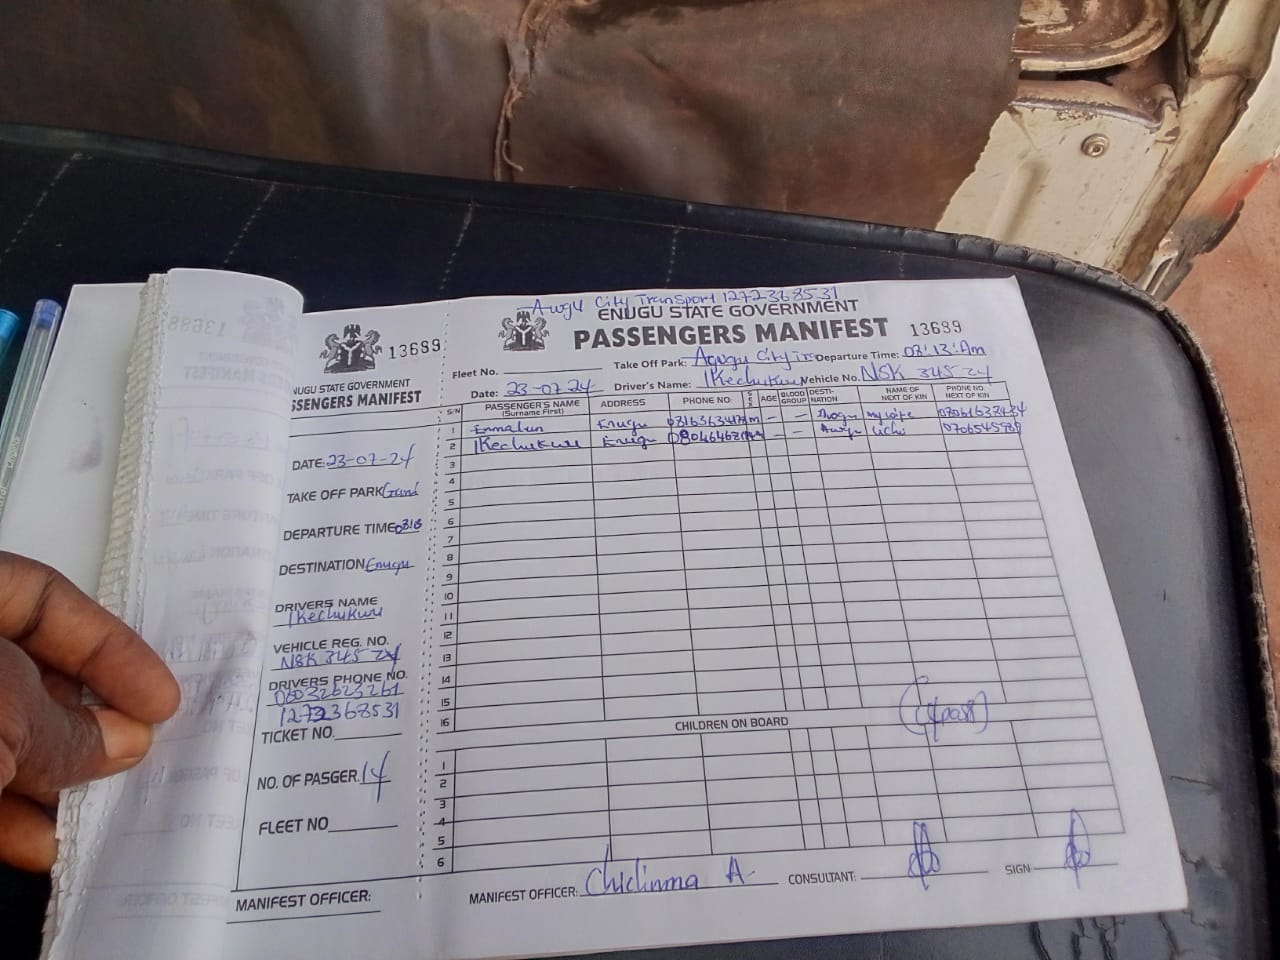 Awgu City Transport 1272368531
ENUGU STATE GOVERNMENT
PASSENGERS MANIFEST
13689
Fleet No.
Take Off Park:
Departure Time: 08:13:Am
Date: 23-07-24
Driver's Name: IKechukwu
Vehicle No. NSK 345 24
S/N
PASSENGER'S NAME
(Surname First)
ADDRESS
PHONE NO.
SEX
AGE
BLOOD
GROUP
DESTI-
NATION
NAME OF
NEXT OF KIN
PHONE NO.
NEXT OF KIN
1 Enugu my wife
2 IKechukwu Enugu Awgu
3
4
5
6
7
8
9
10
11
12
13
14
15
16
CHILDREN ON BOARD
1
2
3
4
5
6
MANIFEST OFFICER: Chidinma A.
CONSULTANT:
SIGN
13689
NUGU STATE GOVERNMENT
SSENGERS MANIFEST
DATE: 23-07-24
TAKE OFF PARK
DEPARTURE TIME
DESTINATION Enugu
DRIVERS NAME
IKechukwu
VEHICLE REG. NO.
NSK 345 24
DRIVERS PHONE NO.
1272368531
TICKET NO.
NO. OF PASGER. 14
FLEET NO
MANIFEST OFFICER: